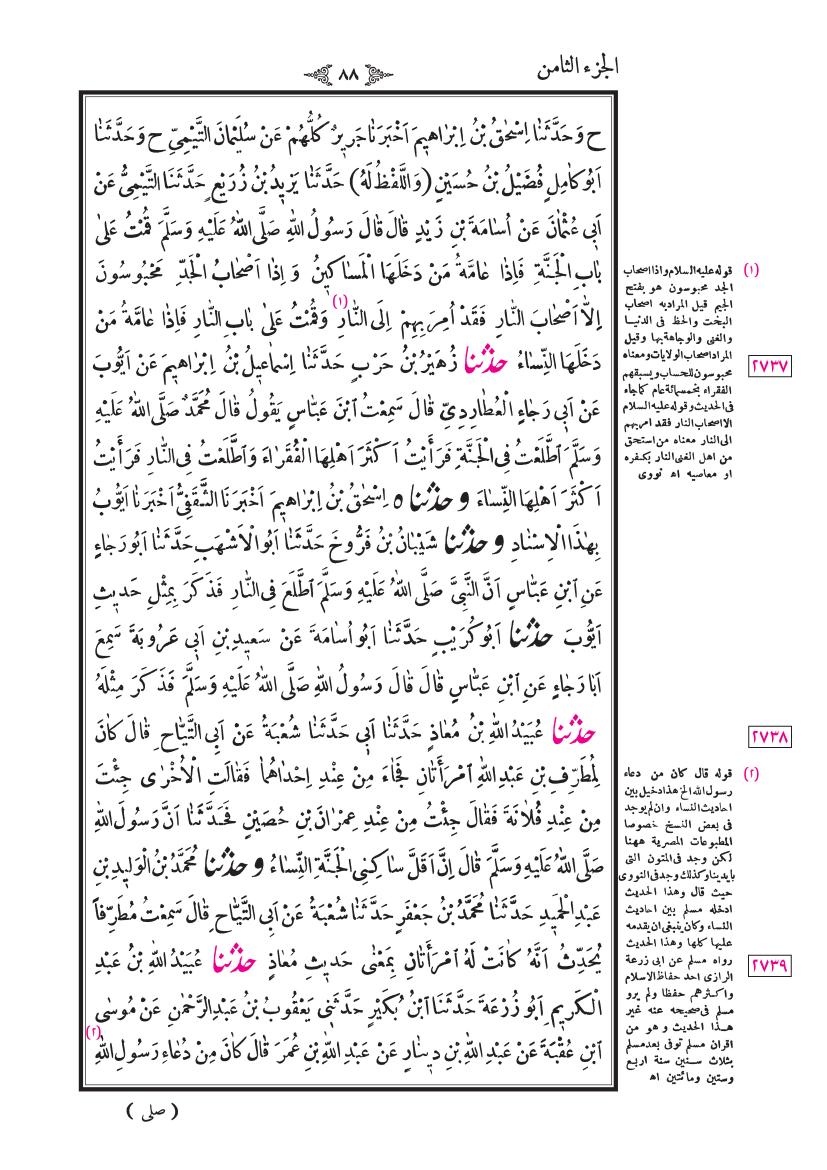 الجزء الثامن
٨٨
ح وَحَدَّثَنَا اِسْحٰقُ بْنُ اِبْرٰاهِيمَ اَخْبَرَنَا جَرِيرٌ كُلُّهُمْ عَنْ سُلَيْمٰانَ التَّيْمِيِّ ح وَحَدَّثَنَا
اَبُو كَامِلٍ فُضَيْلُ بْنُ حُسَيْنٍ (وَاللَّفْظُ لَهُ) حَدَّثَنٰا يَزِيدُ بْنُ زُرَيْعٍ حَدَّثَنَا التَّيْمِيُّ عَنْ
اَبِي عُثْمٰانَ عَنْ اُسَامَةَ بْنِ زَيْدٍ قَالَ قَالَ رَسُولُ اللهِ صَلَّى اللهُ عَلَيْهِ وَسَلَّمَ قُمْتُ عَلىٰ
بٰابِ الْجَنَّةِ فَاِذٰا عٰامَّةُ مَنْ دَخَلَهَا الْمَسَاكِينُ وَ اِذٰا اَصْحٰابُ الْجَدِّ مَحْبُوسُونَ
اِلاّٰ اَصْحٰابَ النّٰارِ فَقَدْ اُمِرَ بِهِمْ اِلَى النّٰارِ (١) وَقُمْتُ عَلىٰ بٰابِ النّٰارِ فَاِذٰا عٰامَّةُ مَنْ
دَخَلَهَا النِّسٰاءُ حدثنا زُهَيْرُ بْنُ حَرْبٍ حَدَّثَنٰا اِسْمٰاعِيلُ بْنُ اِبْرٰاهِيمَ عَنْ اَيُّوبَ
عَنْ اَبِي رَجٰاءٍ الْعُطٰارِدِيِّ قَالَ سَمِعْتُ ابْنَ عَبّٰاسٍ يَقُولُ قٰالَ مُحَمَّدٌ صَلَّى اللهُ عَلَيْهِ
وَسَلَّمَ اَطَّلَعْتُ فِى الْجَنَّةِ فَرَأَيْتُ اَكْثَرَ اَهْلِهَا الْفُقَرٰاءَ وَاَطَّلَعْتُ فِى النّٰارِ فَرَأَيْتُ
اَكْثَرَ اَهْلِهَا النِّسٰاءَ وحدثنا ه اِسْحٰقُ بْنُ اِبْرٰاهِيمَ اَخْبَرَنَا الثَّقَفِيُّ اَخْبَرَنٰا اَيُّوبُ
بِهٰذَا الْاِسْنٰادِ وحدثنا شَيْبٰانُ بْنُ فَرُّوخَ حَدَّثَنٰا اَبُو الْاَشْهَبِ حَدَّثَنٰا اَبُو رَجٰاءٍ
عَنِ ابْنِ عَبّٰاسٍ اَنَّ النَّبِيَّ صَلَّى اللهُ عَلَيْهِ وَسَلَّمَ اَطَّلَعَ فِى النّٰارِ فَذَكَرَ بِمِثْلِ حَدِيثِ
اَيُّوبَ حدثنا اَبُو كُرَيْبٍ حَدَّثَنٰا اَبُو اُسٰامَةَ عَنْ سَعِيدِ بْنِ اَبِي عَرُوبَةَ سَمِعَ
اَبٰا رَجٰاءٍ عَنِ ابْنِ عَبّٰاسٍ قٰالَ قٰالَ رَسُولُ اللهِ صَلَّى اللهُ عَلَيْهِ وَسَلَّمَ فَذَكَرَ مِثْلَهُ
حدثنا عُبَيْدُ اللهِ بْنُ مُعٰاذٍ حَدَّثَنٰا اَبِي حَدَّثَنٰا شُعْبَةُ عَنْ اَبِي التَّيّٰاحِ قٰالَ كٰانَ
لِمُطَرِّفِ بْنِ عَبْدِ اللهِ امْرَأَتٰانِ فَجٰاءَ مِنْ عِنْدِ اِحْدٰاهُمٰا فَقٰالَتِ الْاُخْرٰى جِئْتَ
مِنْ عِنْدِ فُلٰانَةَ فَقٰالَ جِئْتُ مِنْ عِنْدِ عِمْرٰانَ بْنِ حُصَيْنٍ فَحَدَّثَنٰا اَنَّ رَسُولَ اللهِ
صَلَّى اللهُ عَلَيْهِ وَسَلَّمَ قٰالَ اِنَّ اَقَلَّ سٰاكِنِي الْجَنَّةِ النِّسٰاءُ وحدثنا مُحَمَّدُ بْنُ الْوَلِيدِ بْنِ
عَبْدِ الْحَمِيدِ حَدَّثَنٰا مُحَمَّدُ بْنُ جَعْفَرٍ حَدَّثَنٰا شُعْبَةُ عَنْ اَبِي التَّيّٰاحِ قٰالَ سَمِعْتُ مُطَرِّفاً
يُحَدِّثُ اَنَّهُ كٰانَتْ لَهُ امْرَأَتٰانِ بِمَعْنٰى حَدِيثِ مُعٰاذٍ حدثنا عُبَيْدُ اللهِ بْنُ عَبْدِ
الْكَرِيمِ اَبُو زُرْعَةَ حَدَّثَنَا ابْنُ بُكَيْرٍ حَدَّثَنِي يَعْقُوبُ بْنُ عَبْدِ الرَّحْمٰنِ عَنْ مُوسٰى
ابْنِ عُقْبَةَ عَنْ عَبْدِ اللهِ بْنِ دِينٰارٍ عَنْ عَبْدِ اللهِ بْنِ عُمَرَ قٰالَ كٰانَ مِنْ دُعٰاءِ رَسُولِ اللهِ (٢)
( صلى )
(١) قوله عليه السلام واذا اصحاب
الجد محبوسون هو بفتح
الجيم قيل المراد به اصحاب
البخت والحظ فى الدنيا
والغنى والوجاهة بها وقيل
المراد اصحاب الولايات ومعناه
محبوسون للحساب ويسبقهم
الفقراء بخمسمائة عام كما جاء
فى الحديث وقوله عليه السلام
الا اصحاب النار فقد امر بهم
الى النار معناه من استحق
من اهل الغنى النار بكفره
او معاصيه اه نووى
٢٧٣٧
٢٧٣٨
(٢) قوله قال كان من دعاء
رسول الله الخ هذا دخيل بين
احاديث النساء وان لم يوجد
فى بعض النسخ خصوصا
المطبوعات المصرية ههنا
لكن وجد فى المتون التى
بايدينا وكذلك وجد فى النووى
حيث قال وهذا الحديث
ادخله مسلم بين احاديث
النساء وكان ينبغى ان يقدمه
عليها كلها وهذا الحديث
رواه مسلم عن ابى زرعة
الرازى احد حفاظ الاسلام
واكثرهم حفظا ولم يرو
مسلم فى صحيحه عنه غير
هذا الحديث وهو من
اقران مسلم توفى بعد مسلم
بثلاث سنين سنة اربع
وستين ومائتين اه
٢٧٣٩